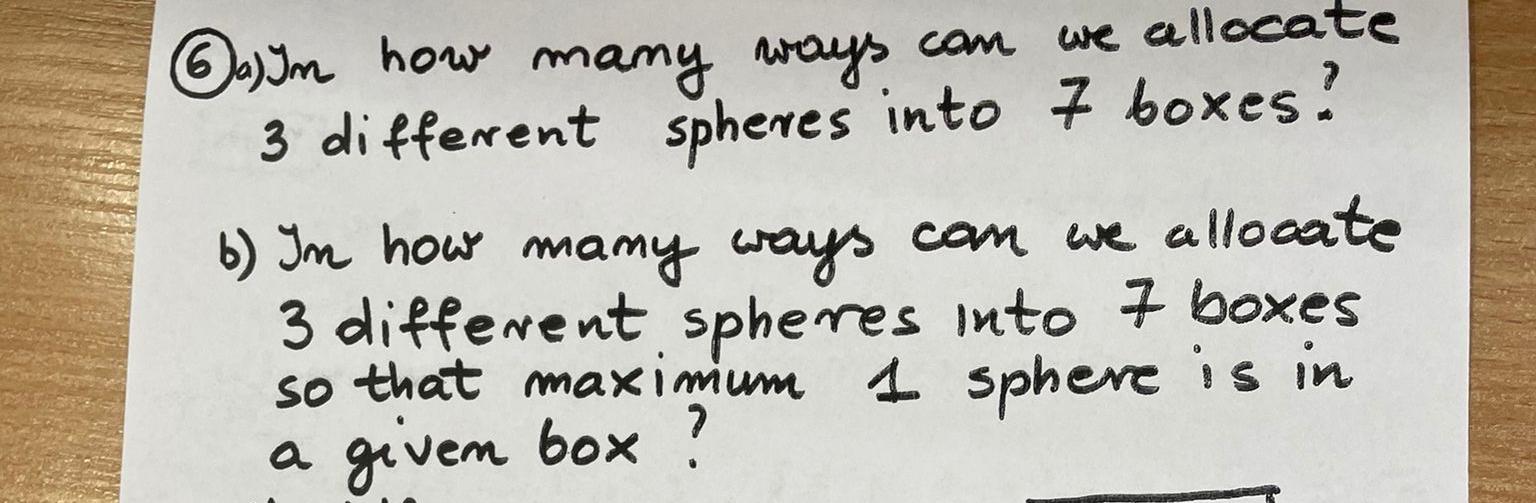 6 a) In how many ways can we allocate
3 different spheres into 7 boxes?
b) In how many ways can we allocate
3 different spheres into 7 boxes
so that maximum 1 sphere is in
a given box?